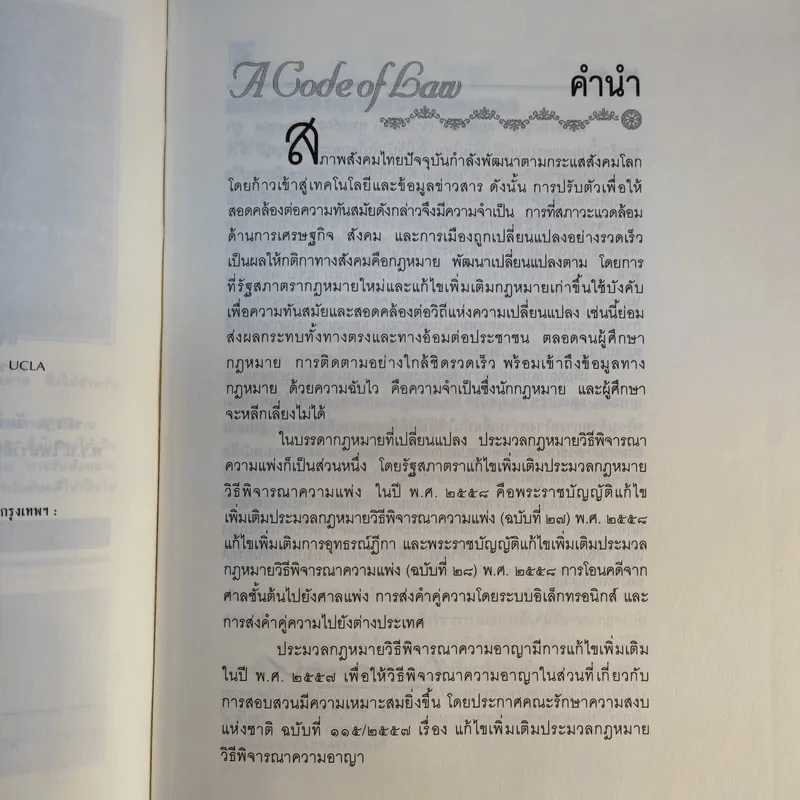 A Code of Law
คำนำ
สภาพสังคมไทยปัจจุบันกำลังพัฒนาตามกระแสสังคมโลก
โดยก้าวเข้าสู่เทคโนโลยีและข้อมูลข่าวสาร ดังนั้น การปรับตัวเพื่อให้
สอดคล้องต่อความทันสมัยดังกล่าวจึงมีความจำเป็น การที่สภาวะแวดล้อม
ด้านการเศรษฐกิจ สังคม และการเมืองถูกเปลี่ยนแปลงอย่างรวดเร็ว
เป็นผลให้กติกาทางสังคมคือกฎหมาย พัฒนาเปลี่ยนแปลงตาม โดยการ
ที่รัฐสภาตรากฎหมายใหม่และแก้ไขเพิ่มเติมกฎหมายเก่าขึ้นใช้บังคับ
เพื่อความทันสมัยและสอดคล้องต่อวิถีแห่งความเปลี่ยนแปลง เช่นนี้ย่อม
ส่งผลกระทบทั้งทางตรงและทางอ้อมต่อประชาชน ตลอดจนผู้ศึกษา
กฎหมาย การติดตามอย่างใกล้ชิดรวดเร็ว พร้อมเข้าถึงข้อมูลทาง
กฎหมาย ด้วยความฉับไว คือความจำเป็นซึ่งนักกฎหมาย และผู้ศึกษา
จะหลีกเลี่ยงไม่ได้
ในบรรดากฎหมายที่เปลี่ยนแปลง ประมวลกฎหมายวิธีพิจารณา
ความแพ่งก็เป็นส่วนหนึ่ง โดยรัฐสภาตราแก้ไขเพิ่มเติมประมวลกฎหมาย
วิธีพิจารณาความแพ่ง ในปี พ.ศ. ๒๕๕๘ คือพระราชบัญญัติแก้ไข
เพิ่มเติมประมวลกฎหมายวิธีพิจารณาความแพ่ง (ฉบับที่ ๒๗) พ.ศ. ๒๕๕๘
แก้ไขเพิ่มเติมการอุทธรณ์ฎีกา และพระราชบัญญัติแก้ไขเพิ่มเติมประมวล
กฎหมายวิธีพิจารณาความแพ่ง (ฉบับที่ ๒๘) พ.ศ. ๒๕๕๘ การโอนคดีจาก
ศาลชั้นต้นไปยังศาลแพ่ง การส่งคำคู่ความโดยระบบอิเล็กทรอนิกส์ และ
การส่งคำคู่ความไปยังต่างประเทศ
ประมวลกฎหมายวิธีพิจารณาความอาญามีการแก้ไขเพิ่มเติม
ในปี พ.ศ. ๒๕๕๗ เพื่อให้วิธีพิจารณาความอาญาในส่วนที่เกี่ยวกับ
การสอบสวนมีความเหมาะสมยิ่งขึ้น โดยประกาศคณะรักษาความสงบ
แห่งชาติ ฉบับที่ ๑๑๕/๒๕๕๗ เรื่อง แก้ไขเพิ่มเติมประมวลกฎหมาย
วิธีพิจารณาความอาญา
UCLA
กรุงเทพฯ :